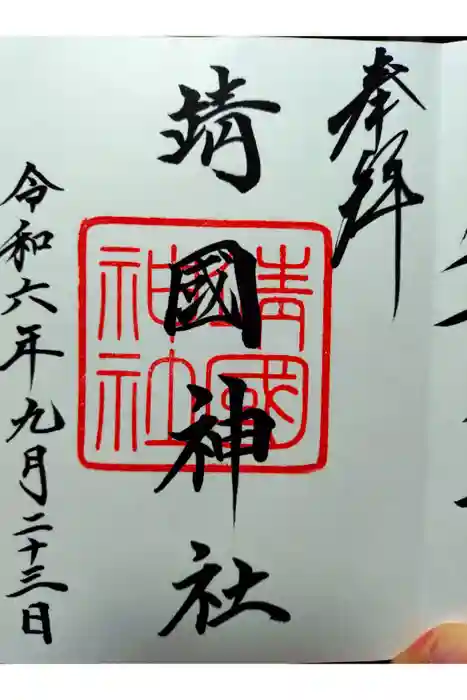 奉拜
靖國神社
靖國
神社
令和六年九月二十三日